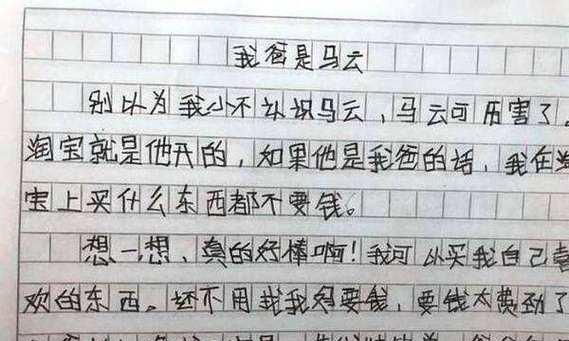 我爸是马云
别以为我小不认识马云，马云可历害了。
淘宝就是他开的，如果他是我爸的话，我在淘
宝上买什么东西都不要钱。
想一想，真的好棒啊！我可以买我自己喜
欢的东西。还不用找我妈要钱，要钱太费劲了